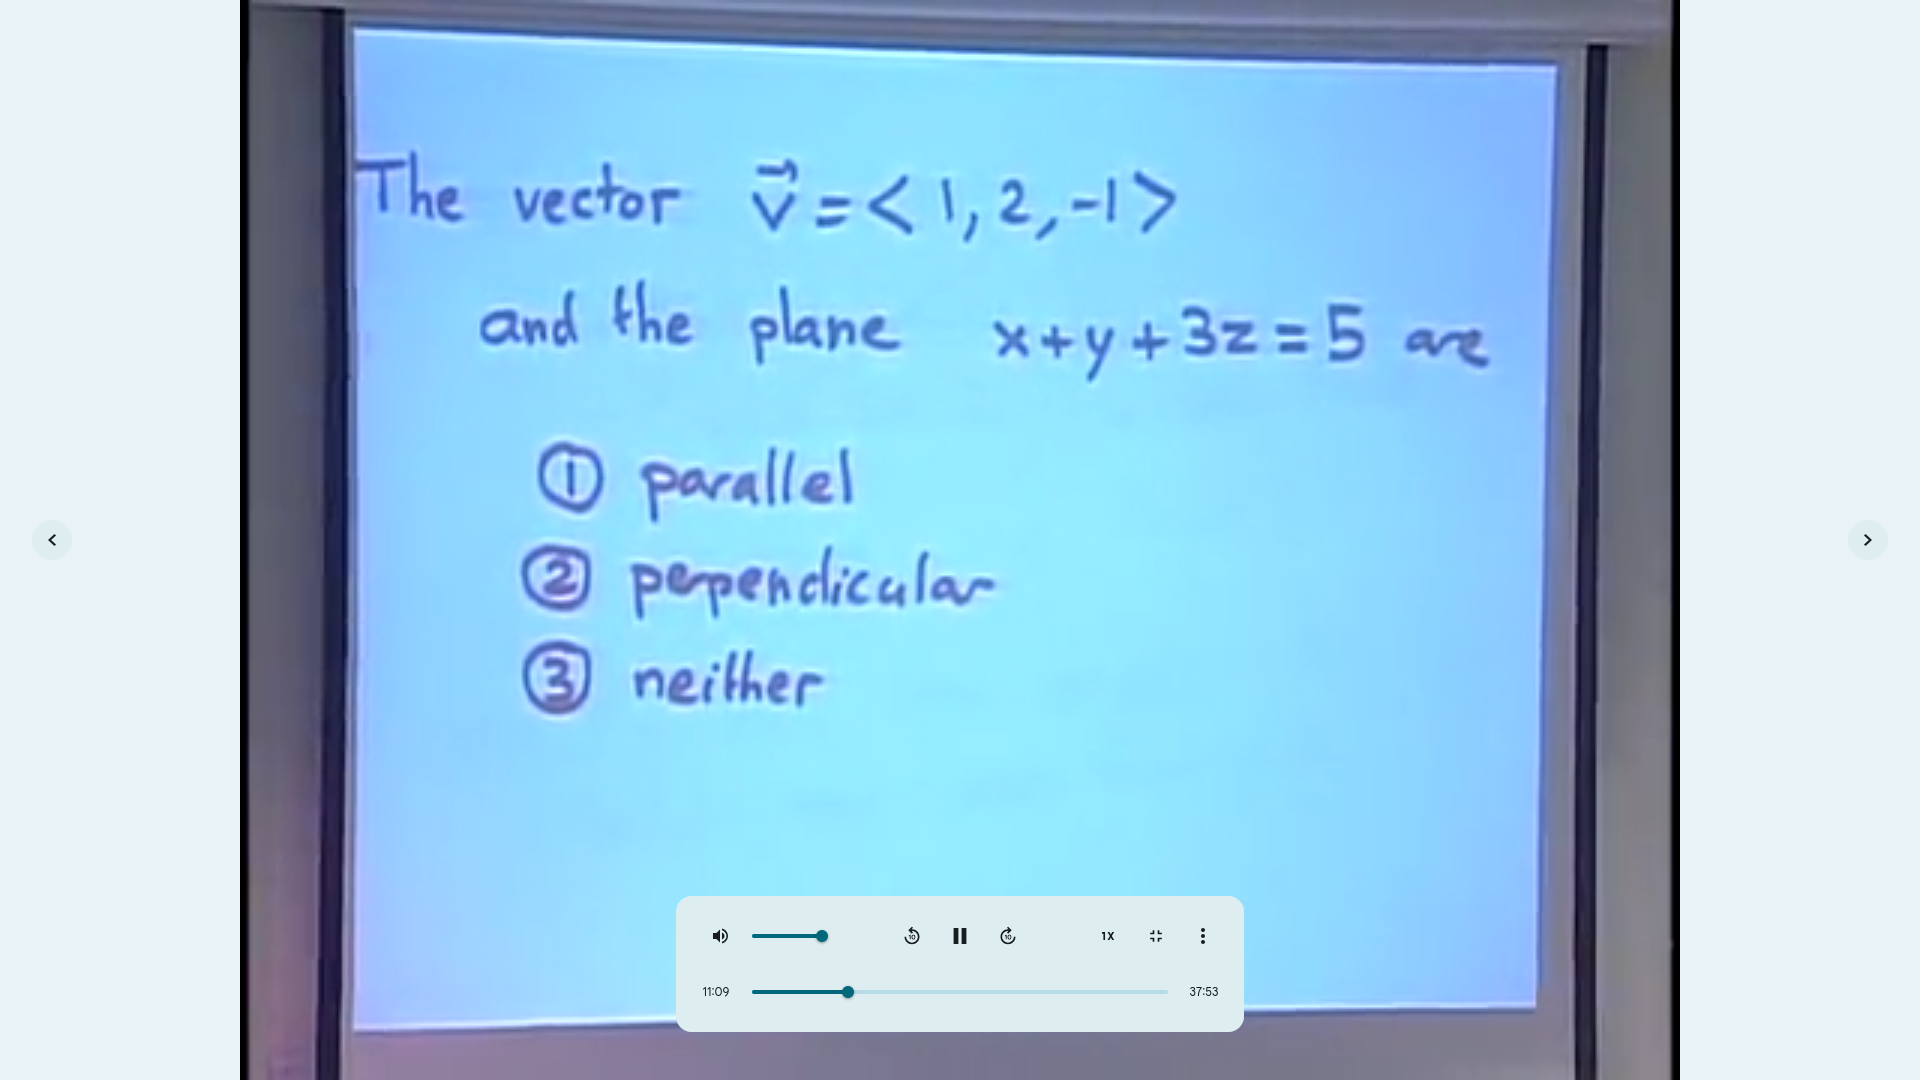 The vector v⃗ = < 1, 2, -1 >
and the plane x + y + 3z = 5 are
① parallel
② perpendicular
③ neither
10
10
1X
11:09
37:53